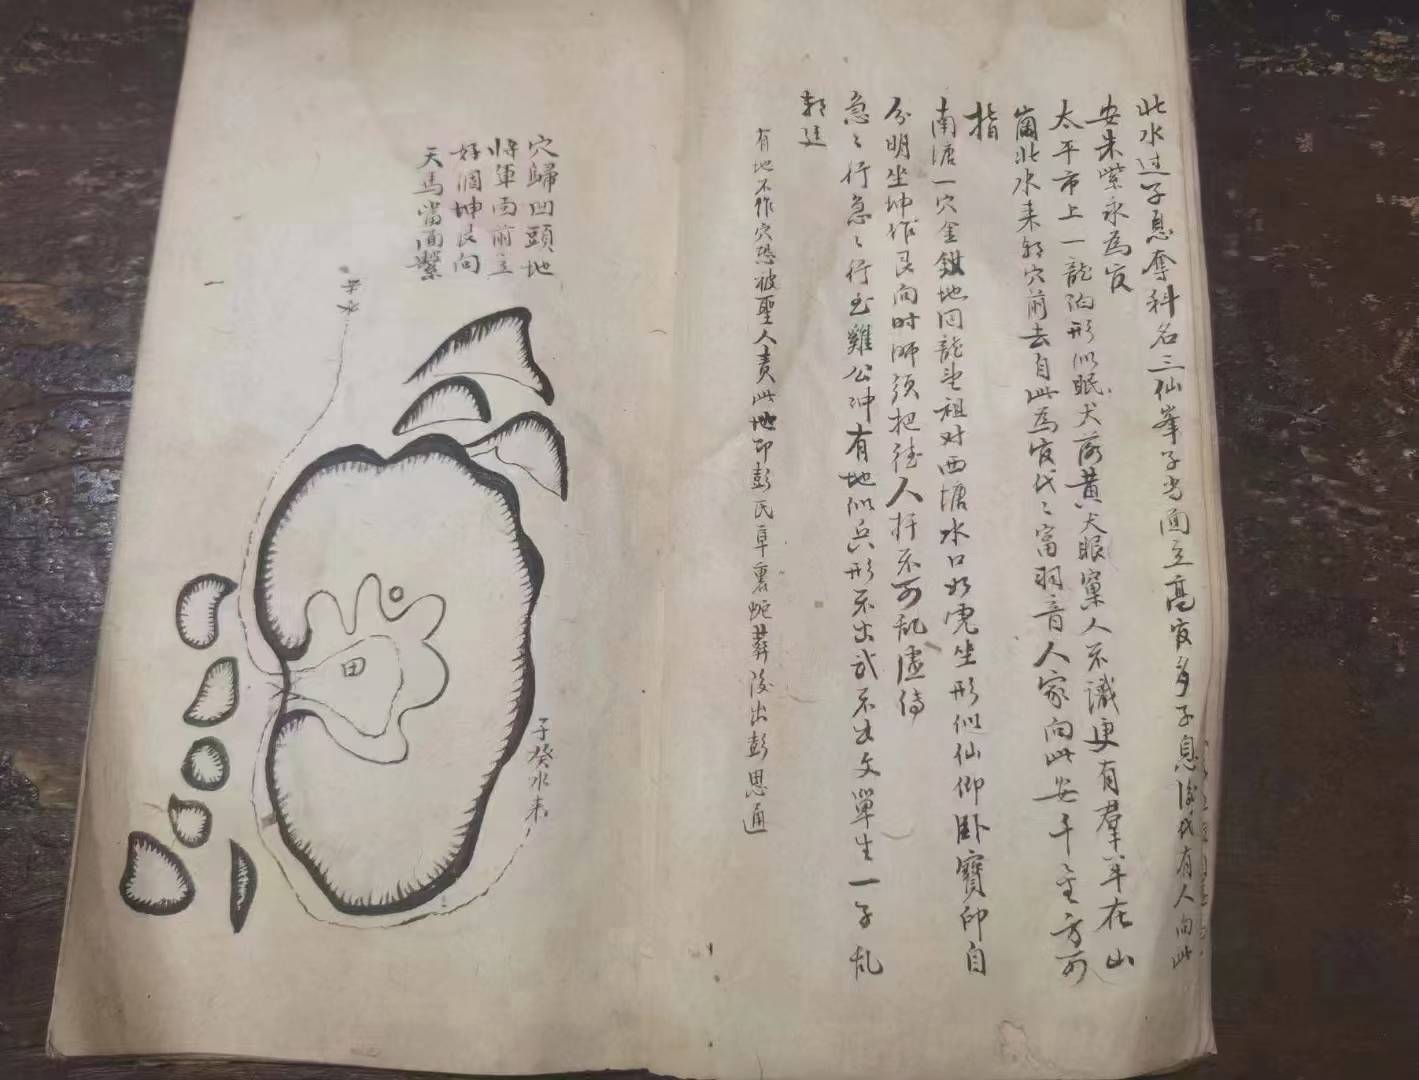 此水过子息夺科名三仙峯子当面立高官多子息後代有人向此
安朱紫永为官
太平市上一龍陷形似眠犬落黄犬眼窠人不識更有羣羊在山
崗北水来朝穴前去自此為官代〻富羽音人家向此安千主方可
指
南塘一穴金釵地回龍坐祖对西塘水口如虎坐形似仙仰卧寳印自
分明坐坤作艮向时師须把德人扞不可乱遗傳
急〻行急〻行乜雞公冲有地似兵形不出武不出文單生一子乱
朝廷
有地不作穴恐被聖人责此地即彭氏章裏蛇葬後出彭思通
穴歸凹頭地
将軍面前立
好個坤艮向
天馬當面繫
辛水
田
子癸水来